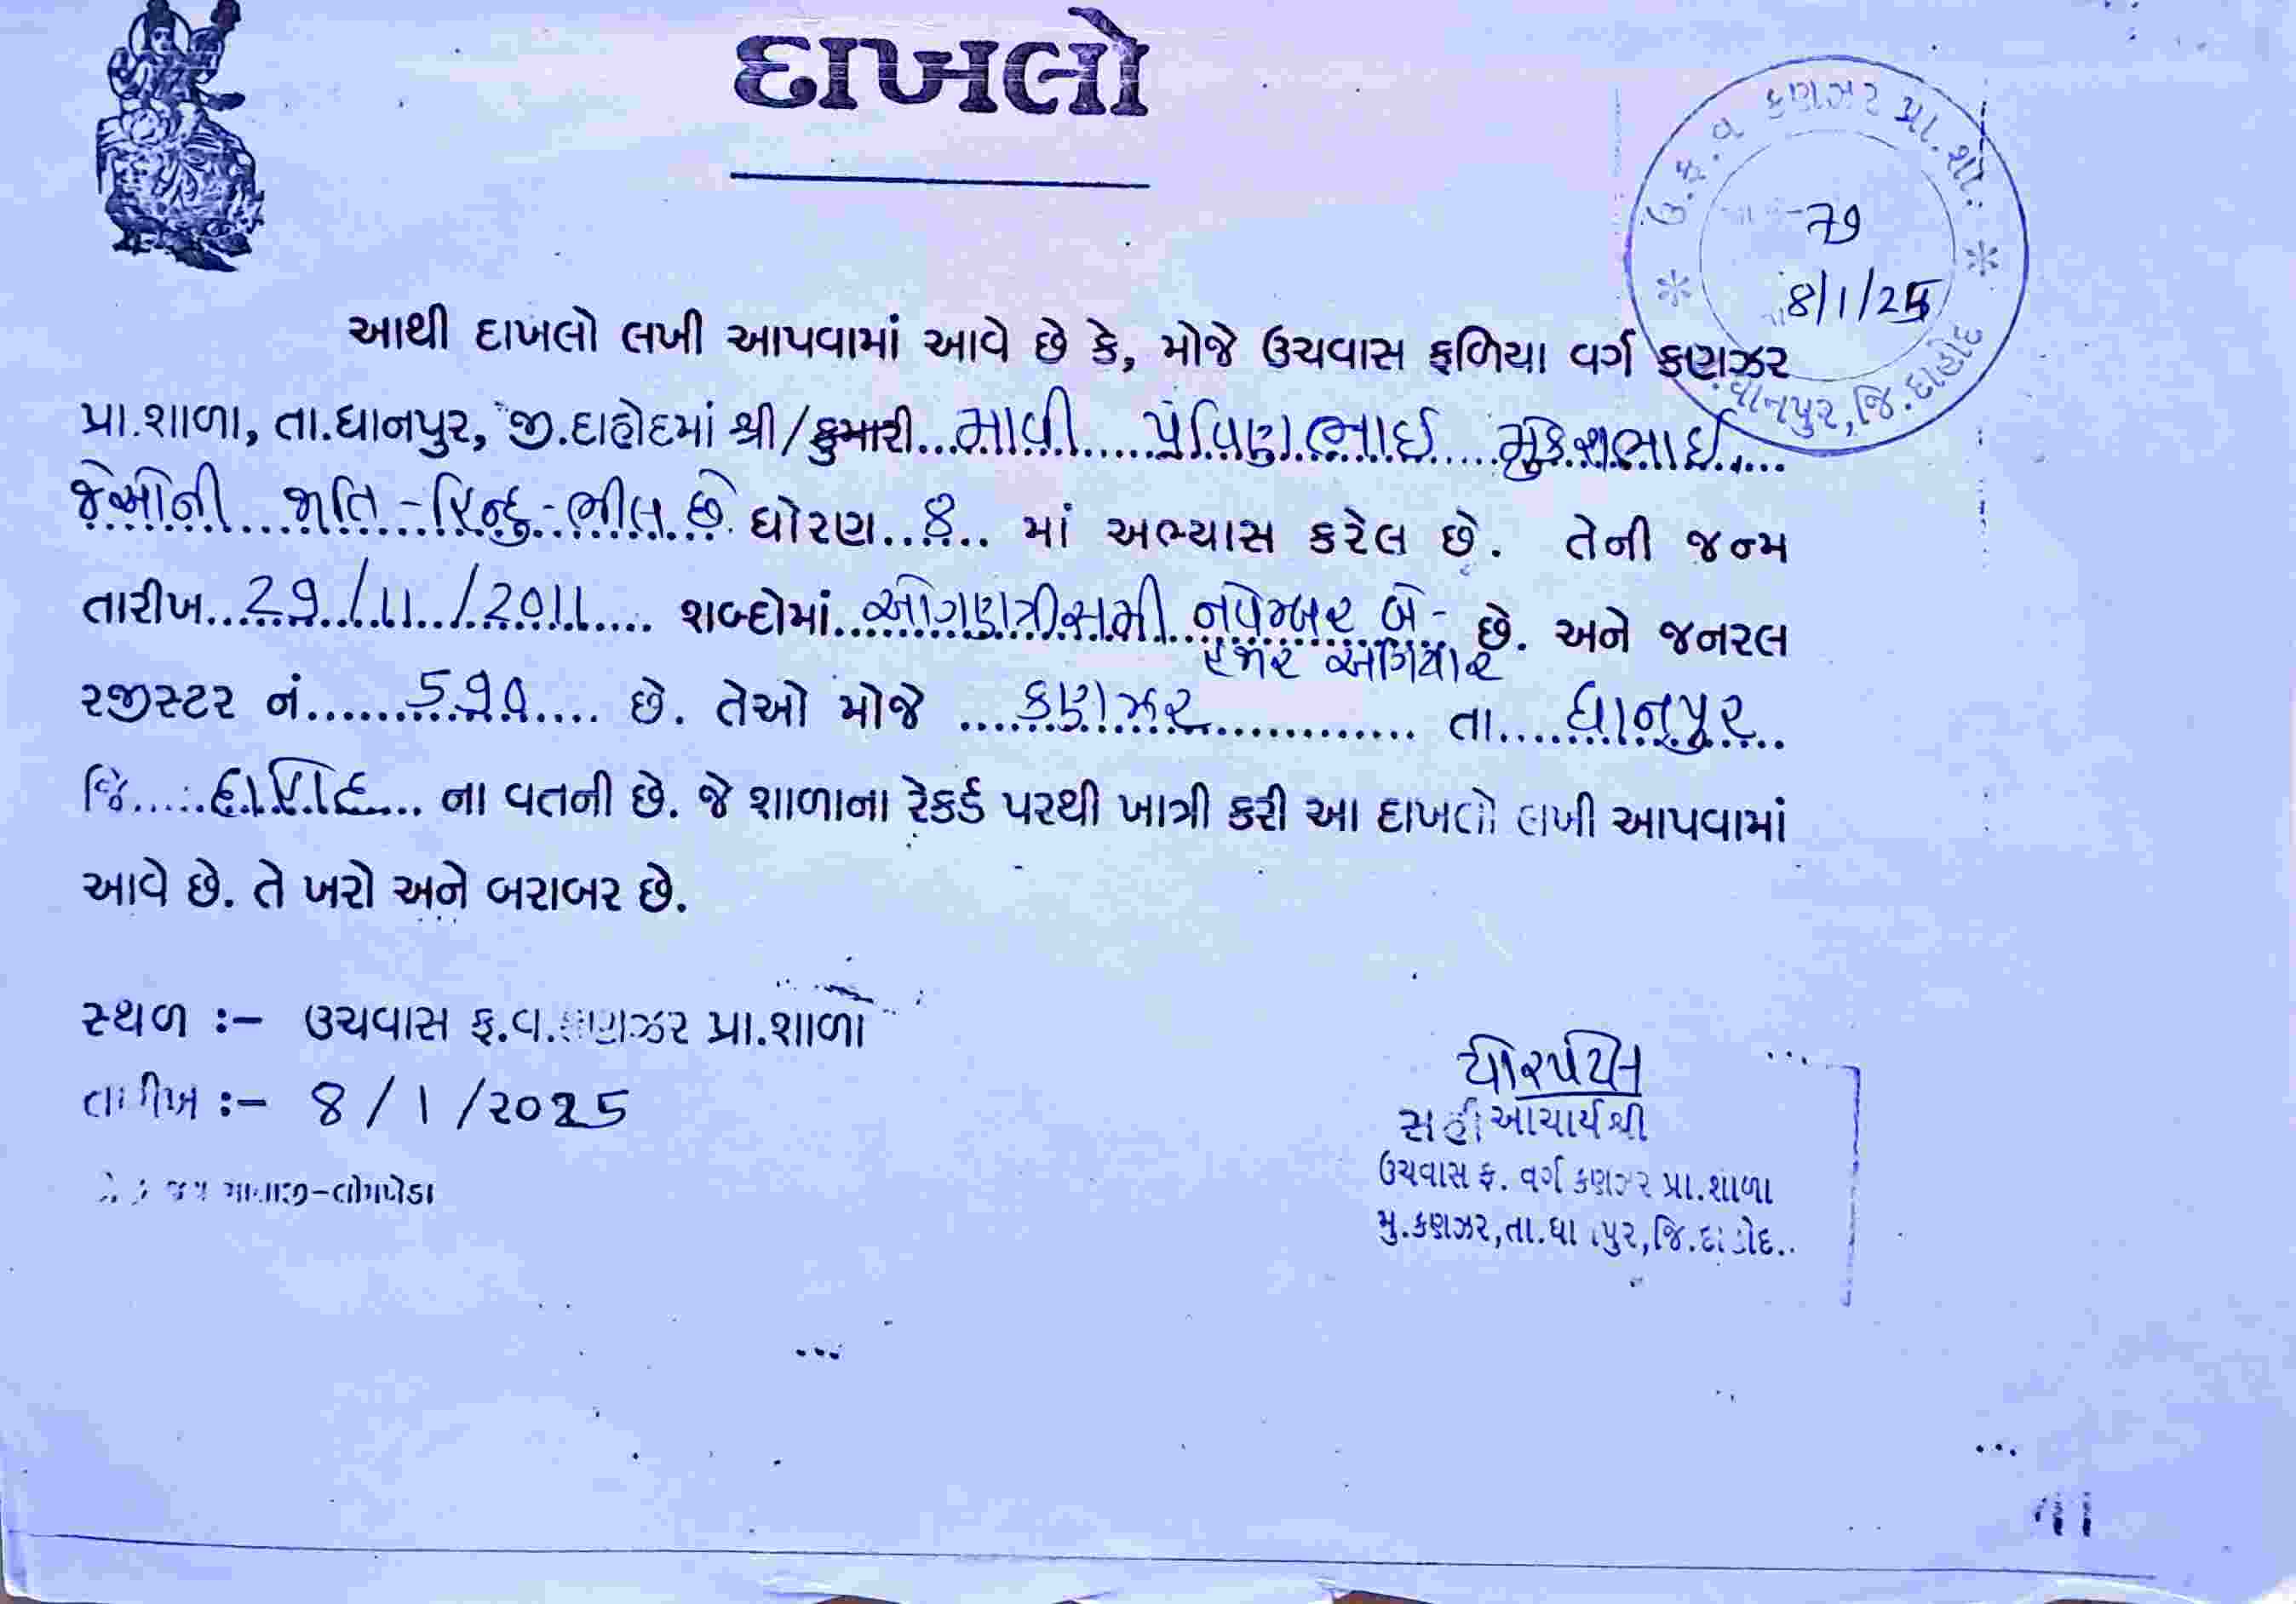 દાખલો
ઉ.ફ.વ કણઝર પ્રા.શા.
79
8/1/25
ધાનપુર,જિ.દાહોદ
આથી દાખલો લખી આપવામાં આવે છે કે, મોજે ઉચવાસ ફળિયા વર્ગ કણઝર
પ્રા.શાળા, તા.ધાનપુર, જી.દાહોદમાં શ્રી/કુમારી...માવી.....પ્રવિણભાઈ.....મુકેશભાઈ.....
જેઓની...જાતિ-હિન્દુ-ભીલ છે. ધોરણ...8... માં અભ્યાસ કરેલ છે. તેની જન્મ
તારીખ...29/11/2011.... શબ્દોમાં..ઓગણત્રીસમી નવેમ્બર બે- છે. અને જનરલ
હજાર અગિયાર
રજીસ્ટર નં.......590..... છે. તેઓ મોજે ....કણઝર............ તા.....ધાનપુર..
જિ.....દાહોદ... ના વતની છે. જે શાળાના રેકર્ડ પરથી ખાત્રી કરી આ દાખલો લખી આપવામાં
આવે છે. તે ખરો અને બરાબર છે.
સ્થળ :– ઉચવાસ ફ.વ.કણઝર પ્રા.શાળા
તારીખ :– 8/1/2025
સહી આચાર્યશ્રી
ઉચવાસ ફ. વર્ગ કણઝર પ્રા.શાળા
મુ.કણઝર,તા.ધાનપુર,જિ.દાહોદ..